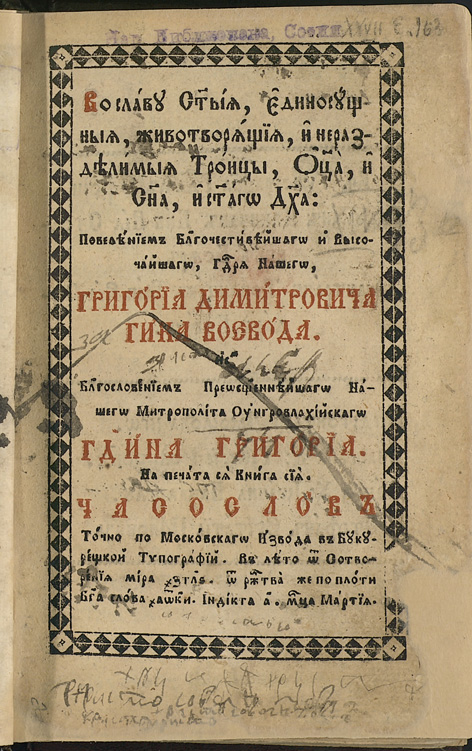 Нар. Библиотека, София XXVII Е. 163
Во славу Ст҃ыѧ, Є҆диносꙋ́щ-
ныѧ, животворѧ́щїѧ, и҆ нераз-
дѣ́лимыѧ Троицы, Ѻ҆ц҃а, и҆
Сн҃а, и҆ ст҃агѡ Дх҃а:
Повелѣ́нїемъ Бл҃гочести́вѣйшагѡ и҆ Высо-
ча́йшагѡ, Гдⷭ҇рѧ На́шегѡ,
ГРИГО́РЇА ДИМИ́ТРОВИЧА
ГИКА ВОЄВО́ДА.
Бл҃гослове́нїемъ Преѡсщ҃е́ннѣйшагѡ На́-
шегѡ Митрополі́та Оу҆нгровлахі́йскагѡ
ГДⷭ҇И́НА ГРИГО́РЇА.
На печа́та сѧ̀ Кни́га сїѧ̀.
ЧАСОСЛО́ВЪ
То́чнѡ по Моско́вскагѡ И҆зво́да въ Бꙋкꙋ-
ре́щкой Тѷпогра́фїй. Въ лѣ́то ѿ Сотво-
ре́нїѧ мі́ра ҂зтлє. ѿ рⷤтва̀ же по пло́ти
Бг҃а сло́ва ҂аѡ҃ки. І҆ндікта а҃. мⷭ҇ца Ма́ртїѧ.